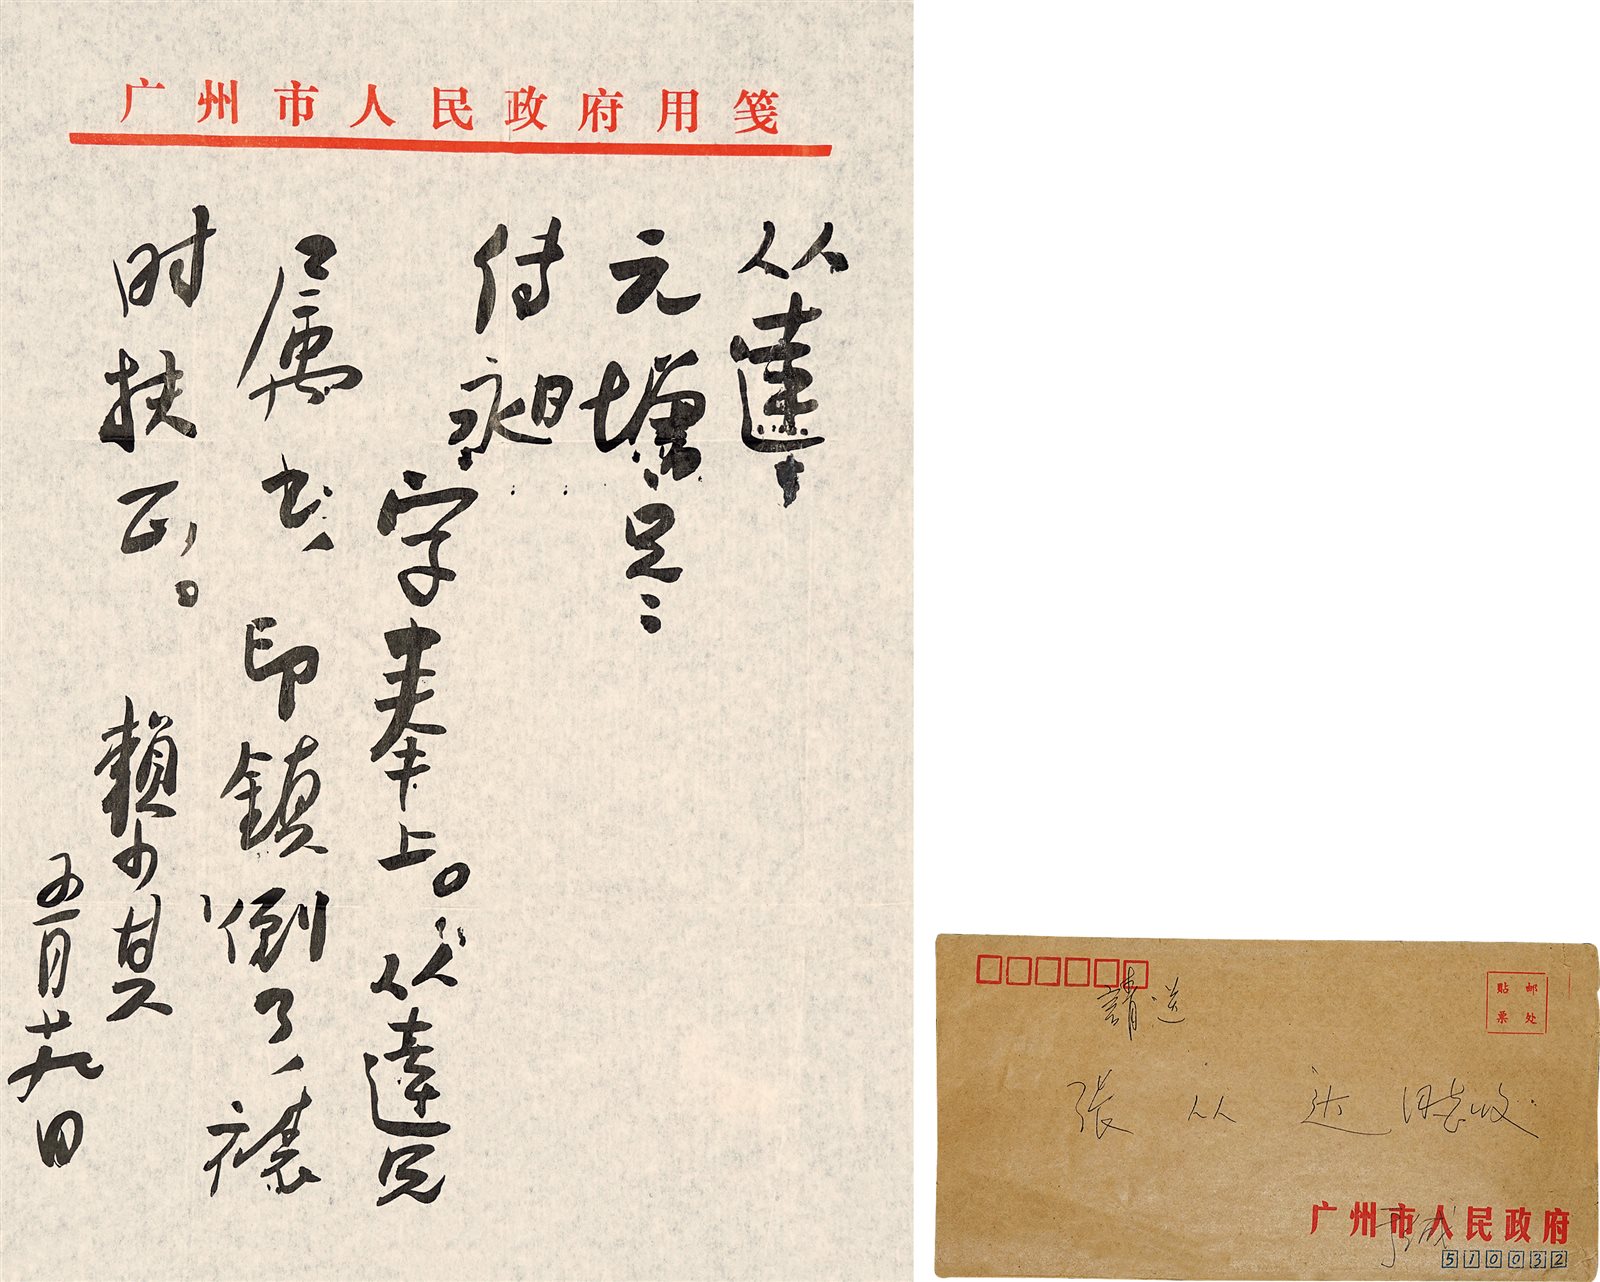 广州市人民政府用笺
从達、
元增兄:
付昶
字奉上。从達兄
属书印鎮倒了,裱
时扶正。
赖少其
五月廿九日
贴邮
票处
請送
张从达同志收
广州市人民政府
510032